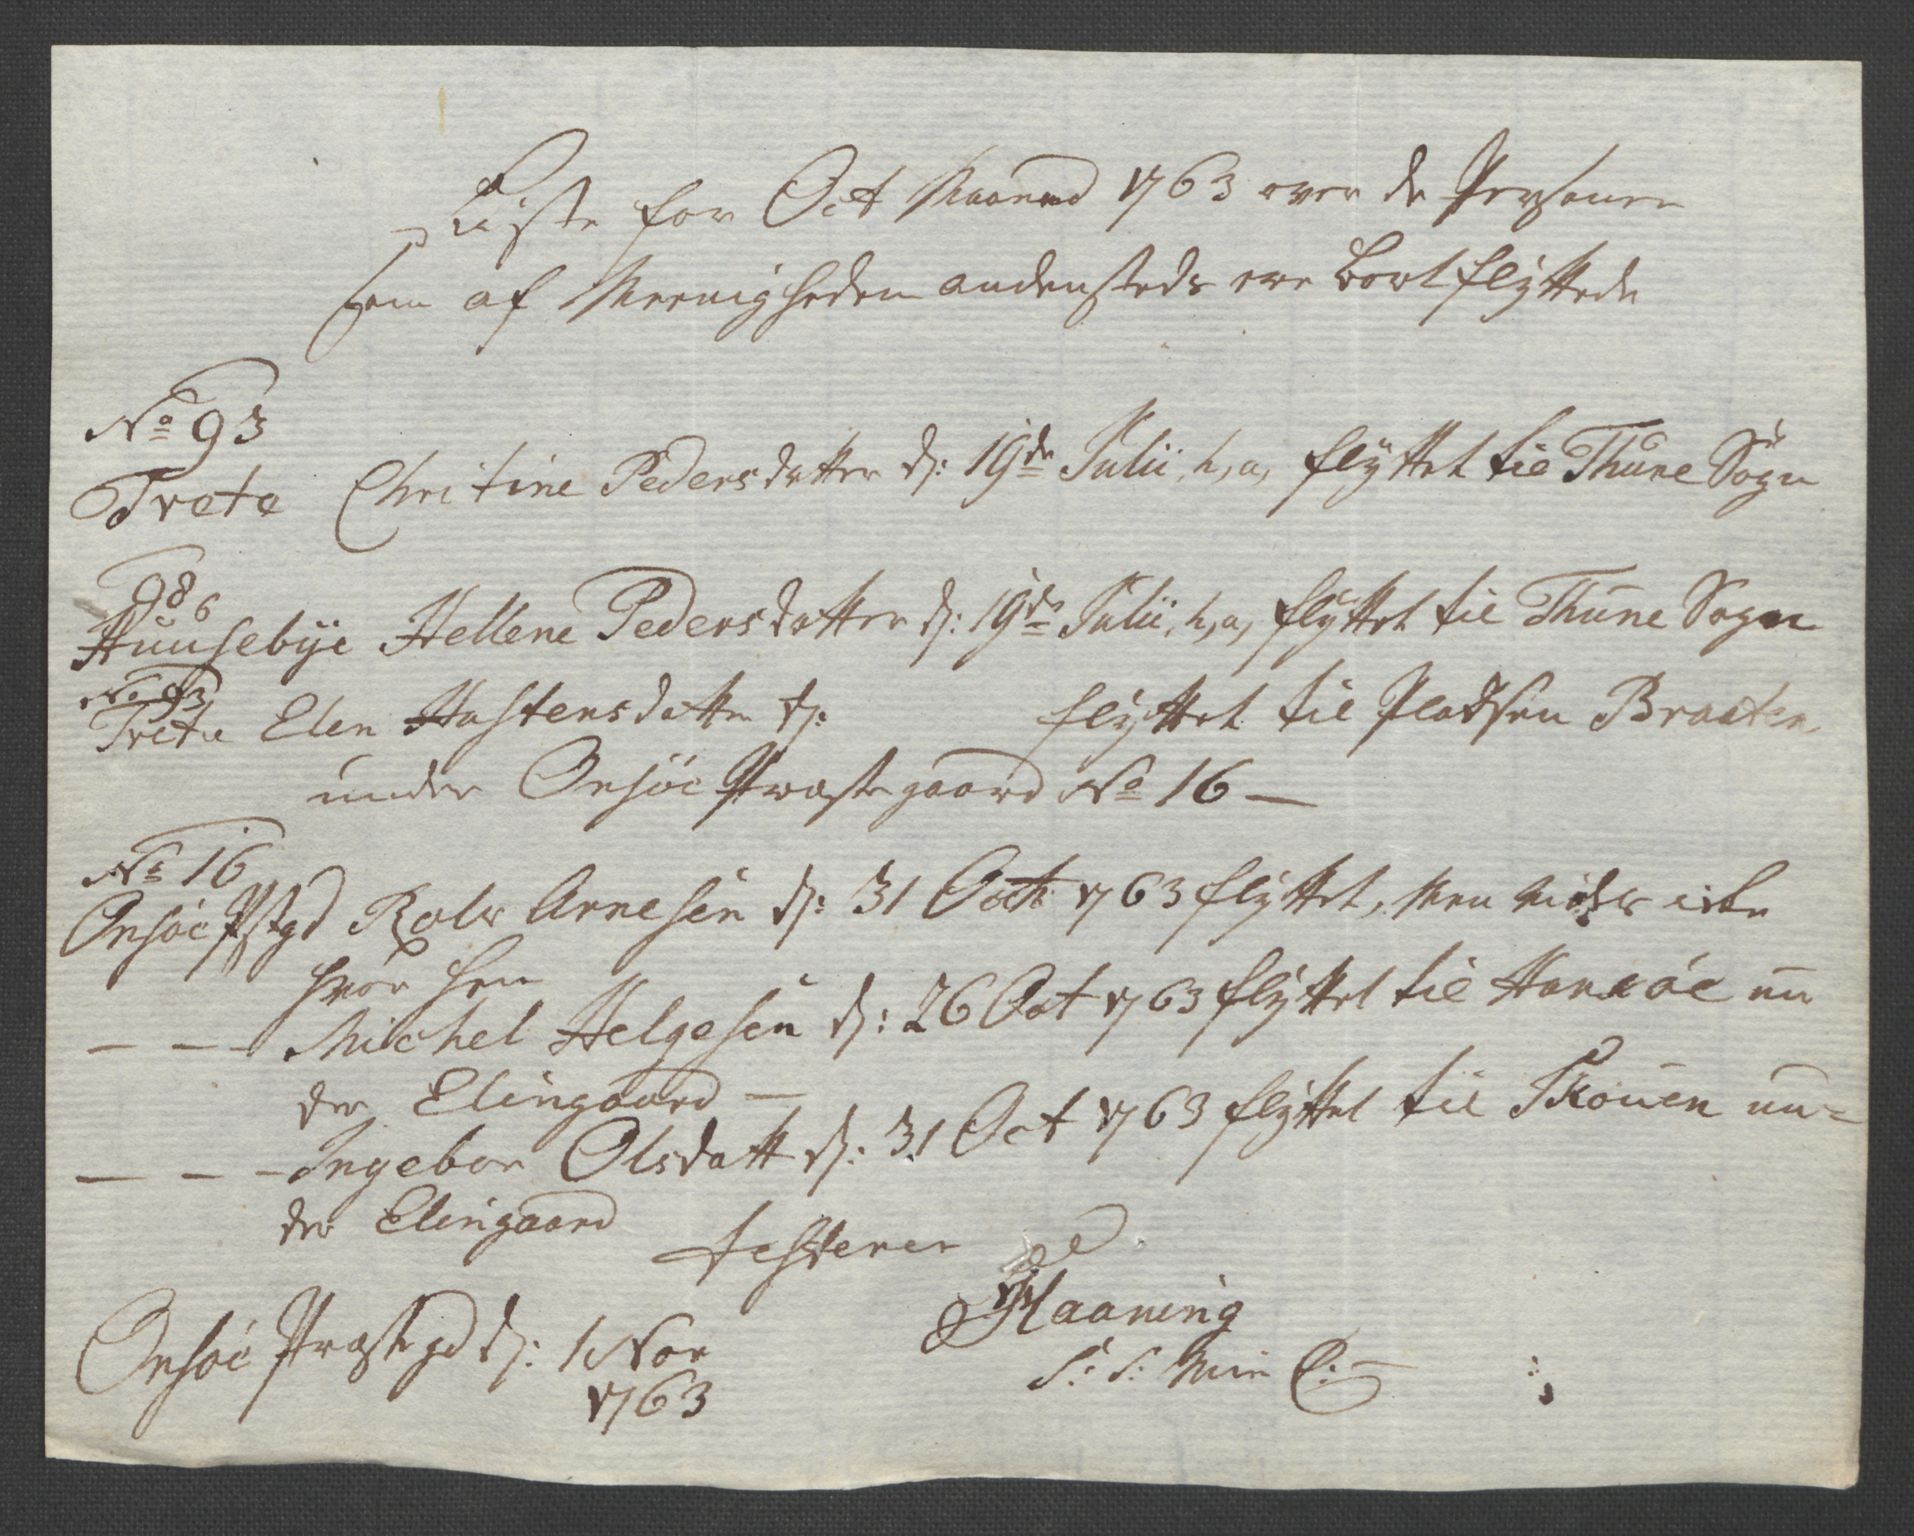 Liste for Oct Maaned 1763 over de Personer
som af Meenigheden andensteds ere bortflyttede
No 93
Trete Chritine Pedersdatter d: 19de Julii h, a, flyttet til Thune Sogn
98 6
Huusebye Hellene Pedersdatter d: 19de Julii, h, a, flyttet til Thune Sogn
No 93
Trete Elen Hastensdatter d: flyttet til Pladsen Braaten
under Onsöe Præstegaard No 16 —
No 16
Onsöe Pstgd Rolv Arnesen d: 31 Octr 1763 flyttet, men vides icke
hvor hen
— — — Michel Helgesen d: 26 Oct 1763 flyttet til Hanköe un
der Elingaard —
— — — Ingebor Olsdatt d: 31 Oct 1763 flyttet til Skouen un=
der Elingaard
testerer
Haaning
Onsöe Præstegd d: 1 Nov
S: S: Min E:
1763